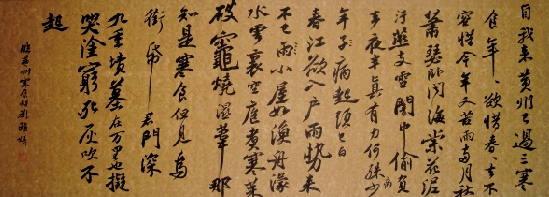 自我来黄州已過三寒
食年年欲惜春春去不
容惜今年又苦雨兩月秋
蕭瑟卧聞海棠花泥
汙燕支雪闇中偷負
去夜半真有力何殊少
年子病起頭已白
春江欲入户雨勢来
不已雨小屋如漁舟濛
水雲裏空庖煮寒菜
破竈燒濕葦那
知是寒食但見烏
銜帋君門深
九重墳墓在万里也擬
哭塗窮死灰吹不
起